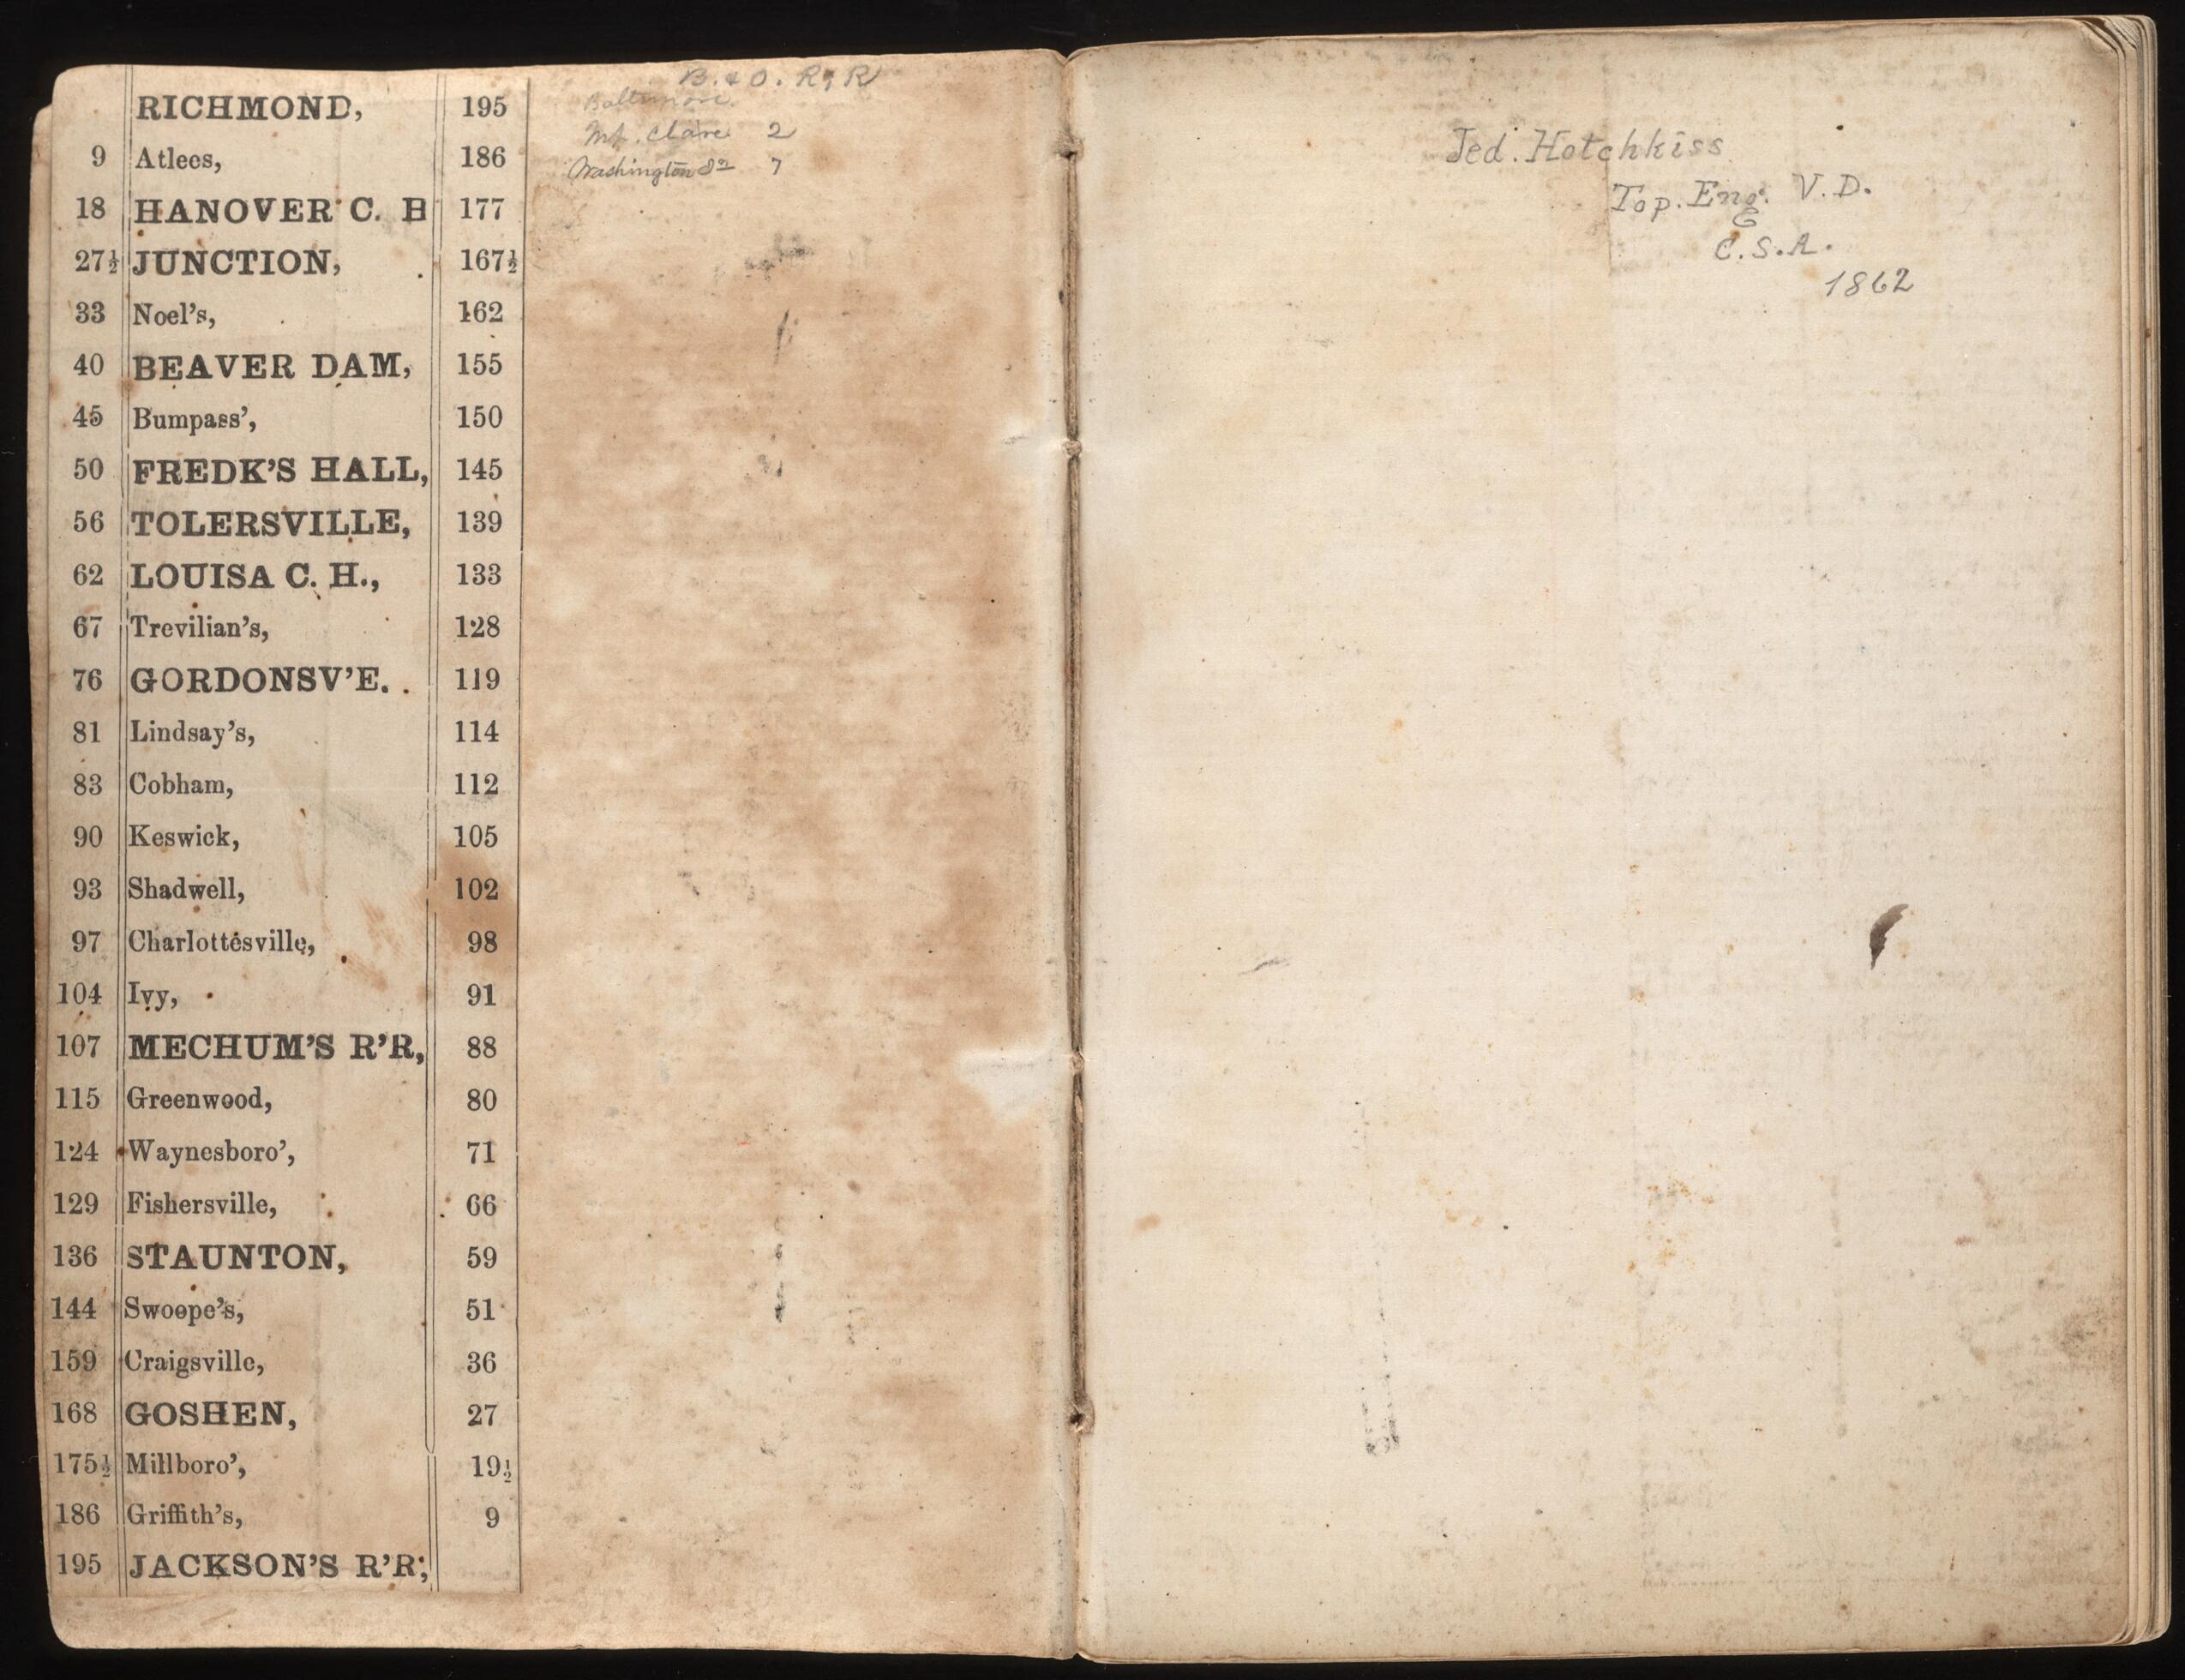 RICHMOND, 195
9 Atlees, 186
18 HANOVER C. H 177
27½ JUNCTION, 167½
33 Noel's, 162
40 BEAVER DAM, 155
45 Bumpass', 150
50 FREDK'S HALL, 145
56 TOLERSVILLE, 139
62 LOUISA C. H., 133
67 Trevilian's, 128
76 GORDONSV'E. 119
81 Lindsay's, 114
83 Cobham, 112
90 Keswick, 105
93 Shadwell, 102
97 Charlottesville, 98
104 Ivy, 91
107 MECHUM'S R'R, 88
115 Greenwood, 80
124 Waynesboro', 71
129 Fishersville, 66
136 STAUNTON, 59
144 Swoope's, 51
159 Craigsville, 36
168 GOSHEN, 27
175½ Millboro', 19½
186 Griffith's, 9
195 JACKSON'S R'R,
B. & O. R. R
Baltimore
Mt. Clare 2
Washington 7
Jed. Hotchkiss
Top. Eng. V. D.
C. S. A.
1862